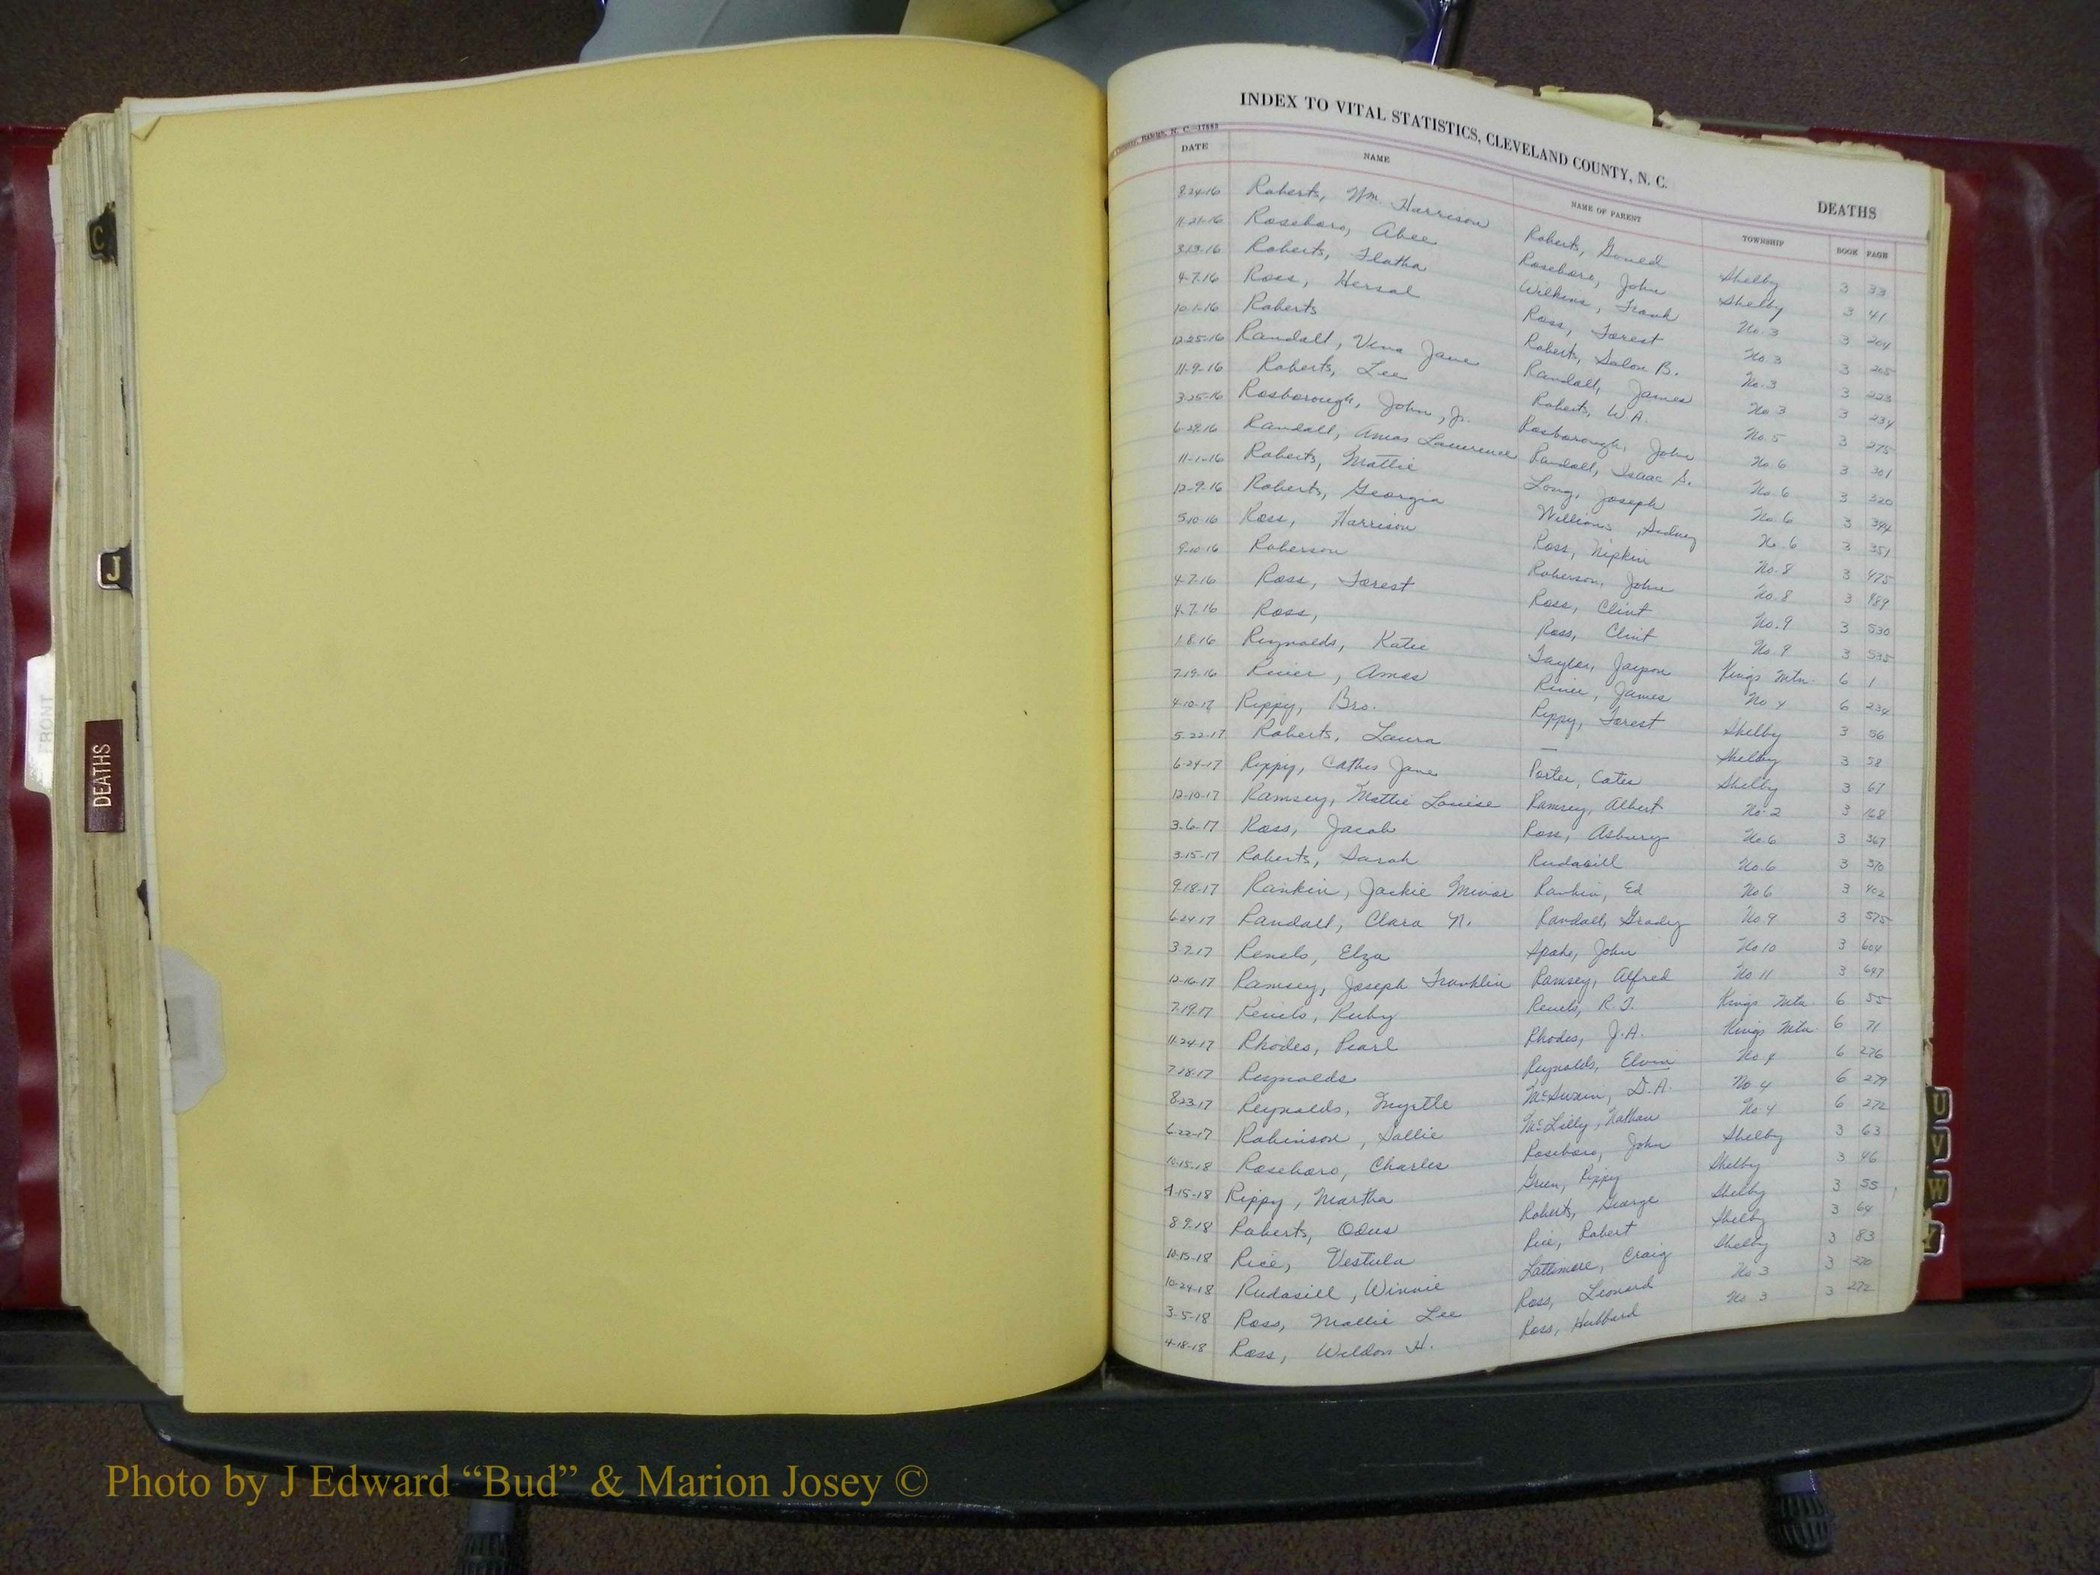 C
J
FRONT
DEATHS
INDEX TO VITAL STATISTICS, CLEVELAND COUNTY, N. C.
DEATHS
Raleigh, N. C.—17883
DATE NAME NAME OF PARENT TOWNSHIP BOOK PAGE
8-24-16 Roberts, Wm. Harrison Roberts, Shelby 3 33
11-21-16 Roseboro, Abee Roseboro, John Shelby 3 41
3-13-16 Roberts, Flatha Wilkins, Frank No. 3 3 204
4-7-16 Ross, Hersal Ross, Forest No 3 3 205
10-1-16 Roberts Roberts, Salon B. No. 3 3 223
12-25-16 Randall, Vena Jane Randall, James No 3 3 234
11-9-16 Roberts, Lee Roberts, W.A. No. 5 3 275
3-25-16 Rosborough, John, Jr. Rosborough, John No 6 3 301
6-29-16 Randall, Amos Lawrence Randall, Isaac S. No 6 3 320
11-1-16 Roberts, Mattie Long, Joseph No 6 3 344
12-9-16 Roberts, Georgia Williams, Sidney No 6 3 351
5-10-16 Ross, Harrison Ross, Nipkin No. 8 3 475
9-10-16 Roberson Roberson, John No. 8 3 489
4-7-16 Ross, Forest Ross, Clint No. 9 3 530
4-7-16 Ross, Ross, Clint No. 9 3 535
1-8-16 Reynolds, Katie Taylor, Kings Mtn. 6 1
7-19-16 River, Amos River, James No 4 6 234
4-10-17 Rippy, Bro. Rippy, Forest Shelby 3 56
5-22-17 Roberts, Laura — Shelby 3 58
6-24-17 Rippy, Cathes Jane Porter, Cater Shelby 3 67
12-10-17 Ramsey, Mattie Louise Ramsey, Albert No. 2 3 168
3-6-17 Ross, Jacob Ross, Asbury No 6 3 367
3-15-17 Roberts, Sarah Rudasill No 6 3 370
9-18-17 Rankin, Jackie Minor Rankin, Ed No 6 3 402
6-24-17 Randall, Clara N. Randall, Grady No 9 3 575
3-7-17 Renels, Elza Spake, John No 10 3 604
12-16-17 Ramsey, Joseph Franklin Ramsey, Alfred No 11 3 647
7-19-17 Reuels, Ruby Reuels, R.F. Kings Mtn 6 55
11-24-17 Rhodes, Pearl Rhodes, J.A. Kings Mtn 6 71
7-28-17 Reynolds Reynolds, Elvin No 4 6 276
8-23-17 Reynolds, Myrtle McSwain, D.A. No 4 6 279
6-22-17 Robinson, Sallie McLilly, Nathan No 4 6 272
10-15-18 Roseboro, Charles Roseboro, John Shelby 3 63
4-15-18 Rippy, Martha Green, Rippy Shelby 3 46
8-9-18 Roberts, Odus Roberts, George Shelby 3 55
10-15-18 Rice, Vestula Rice, Robert Shelby 3 64
10-24-18 Rudasill, Winnie Lattimore, Craig Shelby 3 83
3-5-18 Ross, Mallie Lee Ross, Leonard No 3 3 270
4-18-18 Ross, Weldon H. Ross, Hubbard No 3 3 272
U
V
W
Y
Photo by J Edward “Bud” & Marion Josey ©